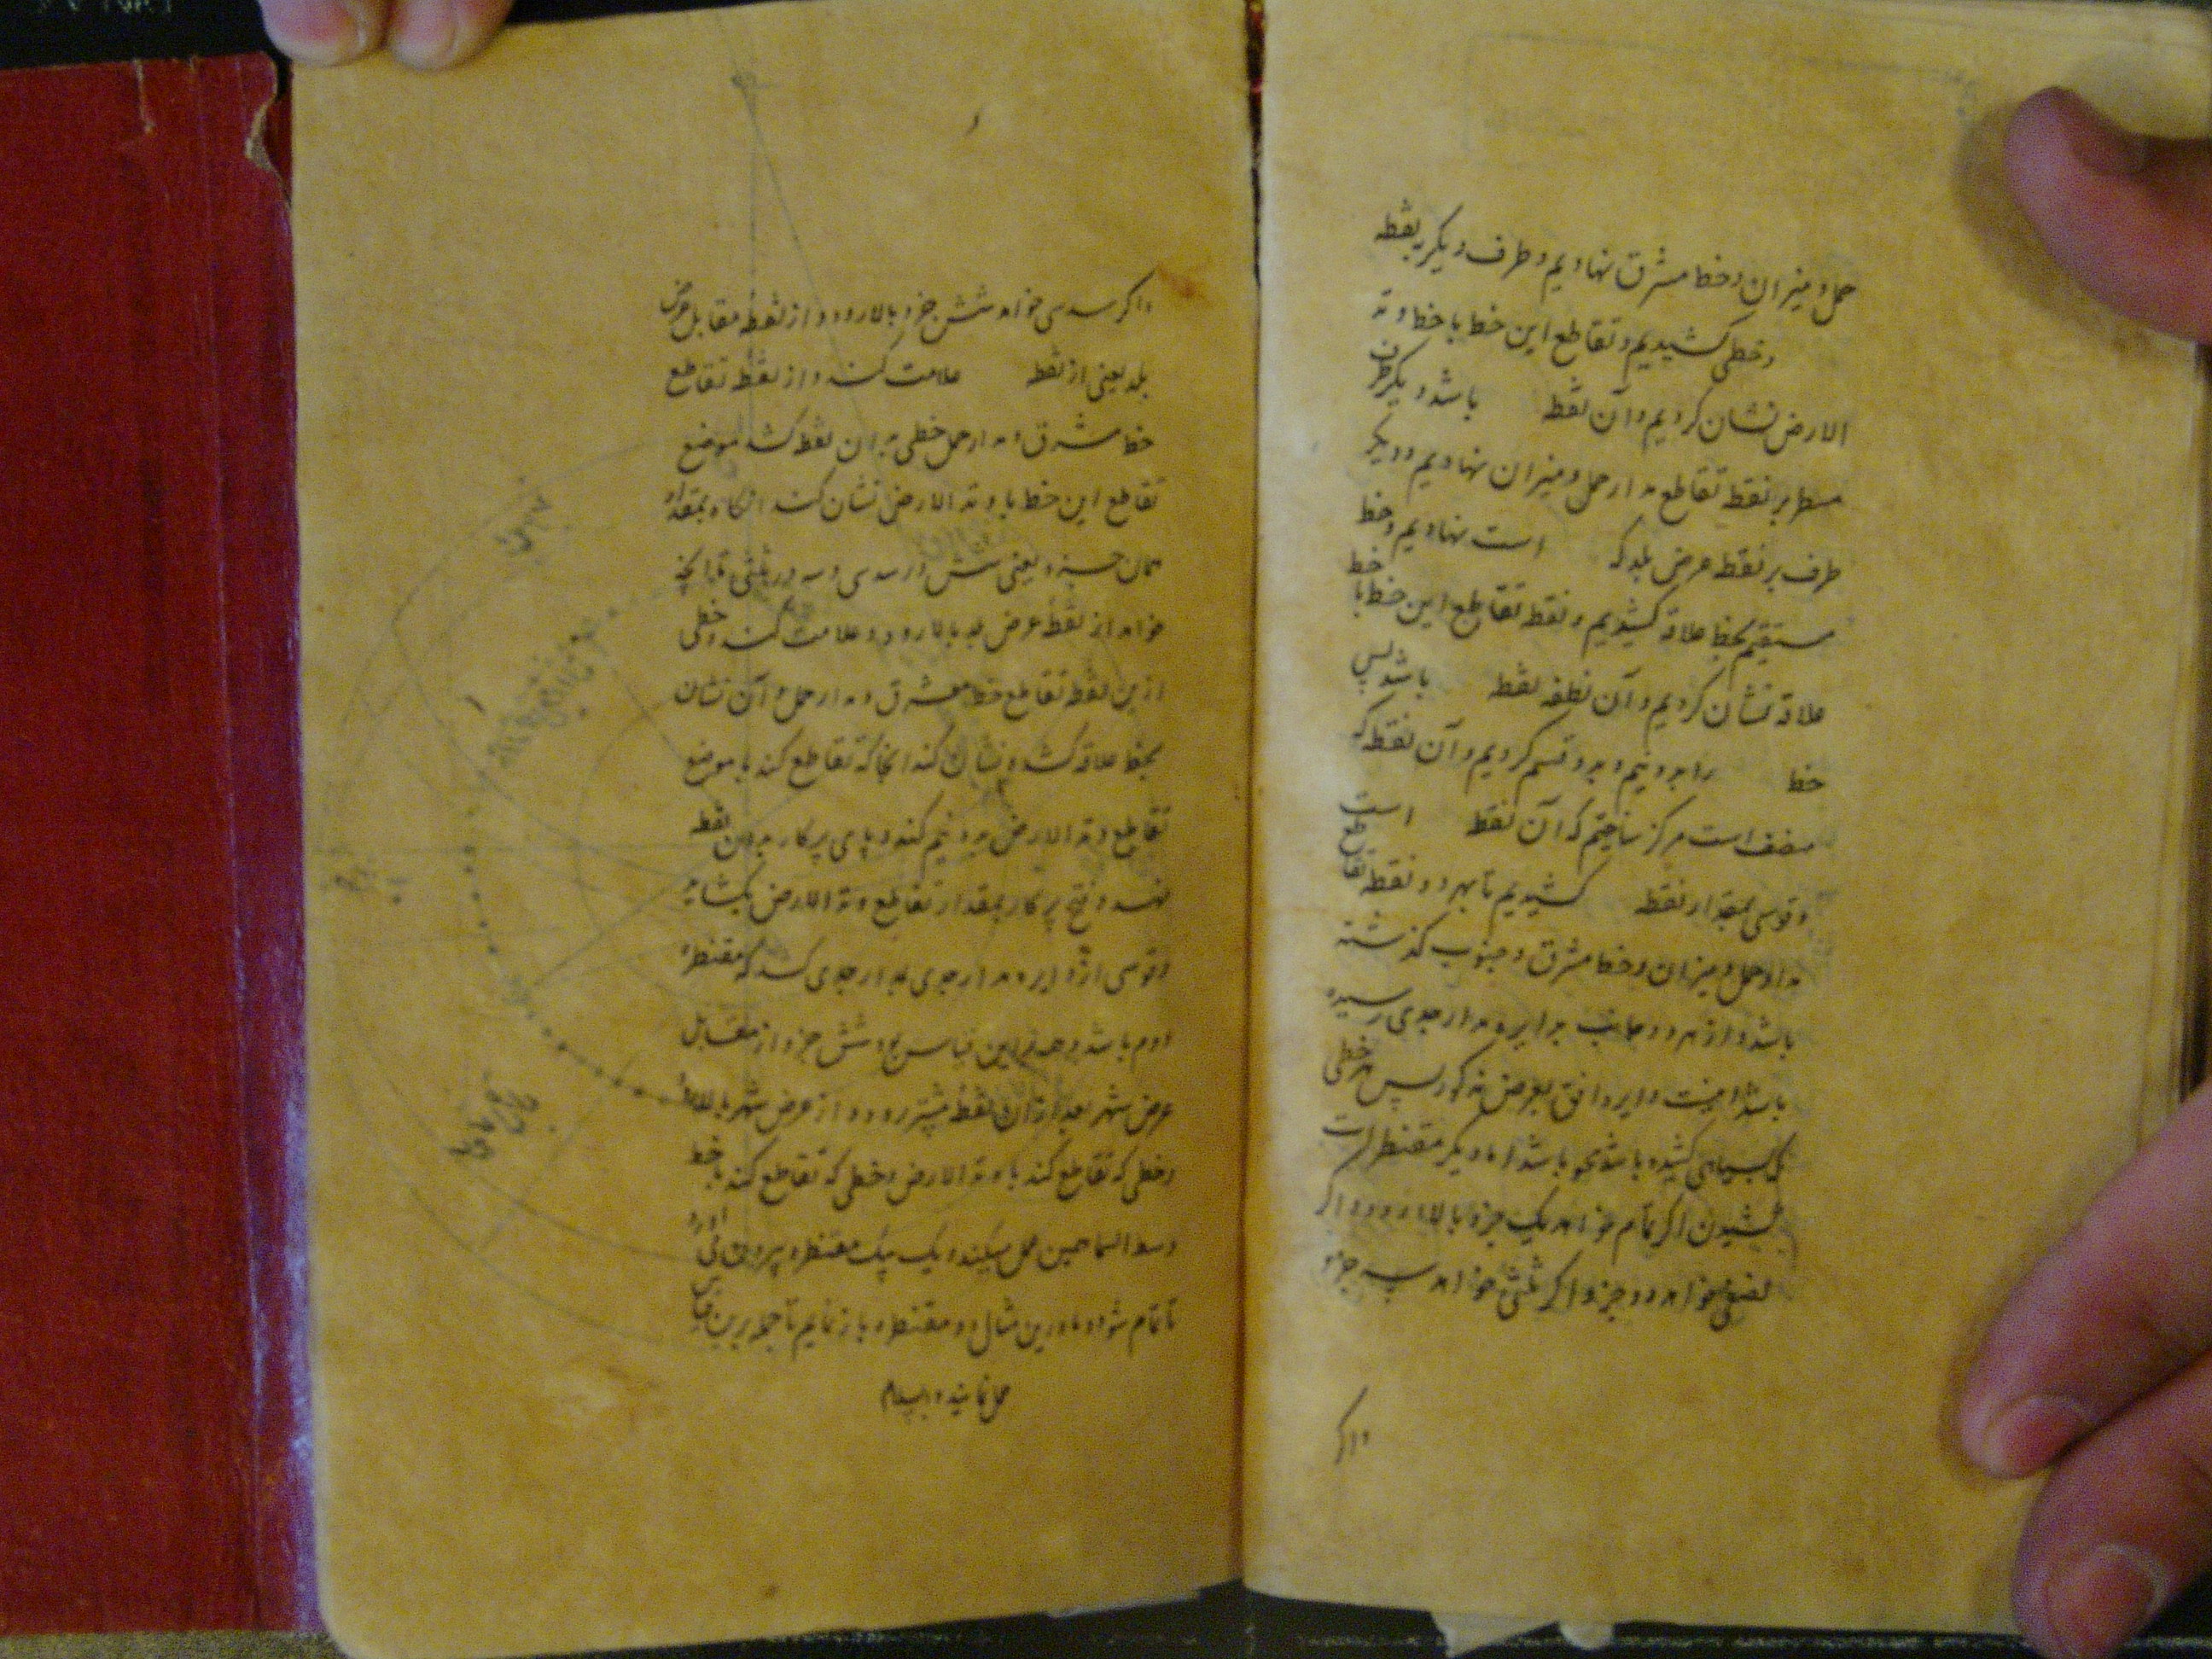 حمل و میزان و خط مشرق نهادیم و طرف دیگر بر نقطه
و خطی کشیدیم و تقاطع این خط با خط وتد
الارض نشان کردیم و آن نقطه باشد و یکطرف
مسطر بر نقطه تقاطع مدار حمل و میزان نهادیم و دیگر
طرف بر نقطه عرض بلد که است نهادیم و خط
مستقیم بخط علاقه کشیدیم و نقطه تقاطع این خط با خط
علاقه نشان کردیم و آن نقطه باشد پس
خط را بدو نیم و بدو قسم کردیم و آن نقطه که
منصف است مرکز ساختیم که آن نقطه است
و قوسی بمقدار نقطه کشیدیم تا بهر دو نقطه تقاطع
مدار حمل و میزان و خط مشرق و جنوب گذشته
باشد و از هر دو جانب بدایره مدار جدی رسیده
باشد اینست دایره افق بعرض مذکور پس هر خطی
که بسیاهی کشیده باشد محو باشد اما دیگر مقنطرات
کشیدن اگر تمام خواهد یک جزو بالا رود و اگر
نصفی خواهد دو جزو و اگر ثلثی خواهد سه جزو
و اگر
و اگر سدسی خواهد شش جزو بالا رود و از نقطه مقابل عرض
بلد یعنی از نقطه علامت کند و از نقطه تقاطع
خط مشرق و مدار حمل خطی بدان نقطه کشد موضع
تقاطع این خط با وتد الارض نشان کند آنگاه بمقدار
همان جزو یعنی شش در سدسی و سه در ثلثی تا آنچه
خواهد از نقطه عرض بلد بالا رود و علامت کند و خطی
ازین نقطه تقاطع خط مشرق و مدار حمل و آن نشان
بخط علاقه کشد و نشان کند آنجا که تقاطع کند با موضع
تقاطع وتد الارض بدو نیم کند و پای پرکار بدان نقطه
نهد و فتح پرکار بمقدار تقاطع وتد الارض بگشاید
و قوسی از دایره مدار جدی بمدار جدی کشد که مقنطره
دوم باشد و هم برین قیاس شش جزو از مقابل
عرض شهر بعد از آن نقطه پیشتر رود و از عرض شهر بالا
و خطی که تقاطع کند با وتد الارض و خطی که تقاطع کند با خط
وسط السما همین عمل میکند و یک یک مقنطره بیرون می آورد
تا تمام شود و ما درین مثال دو مقنطره باز نمائیم تا جمله برین قیاس
عمل نمایند والسلام